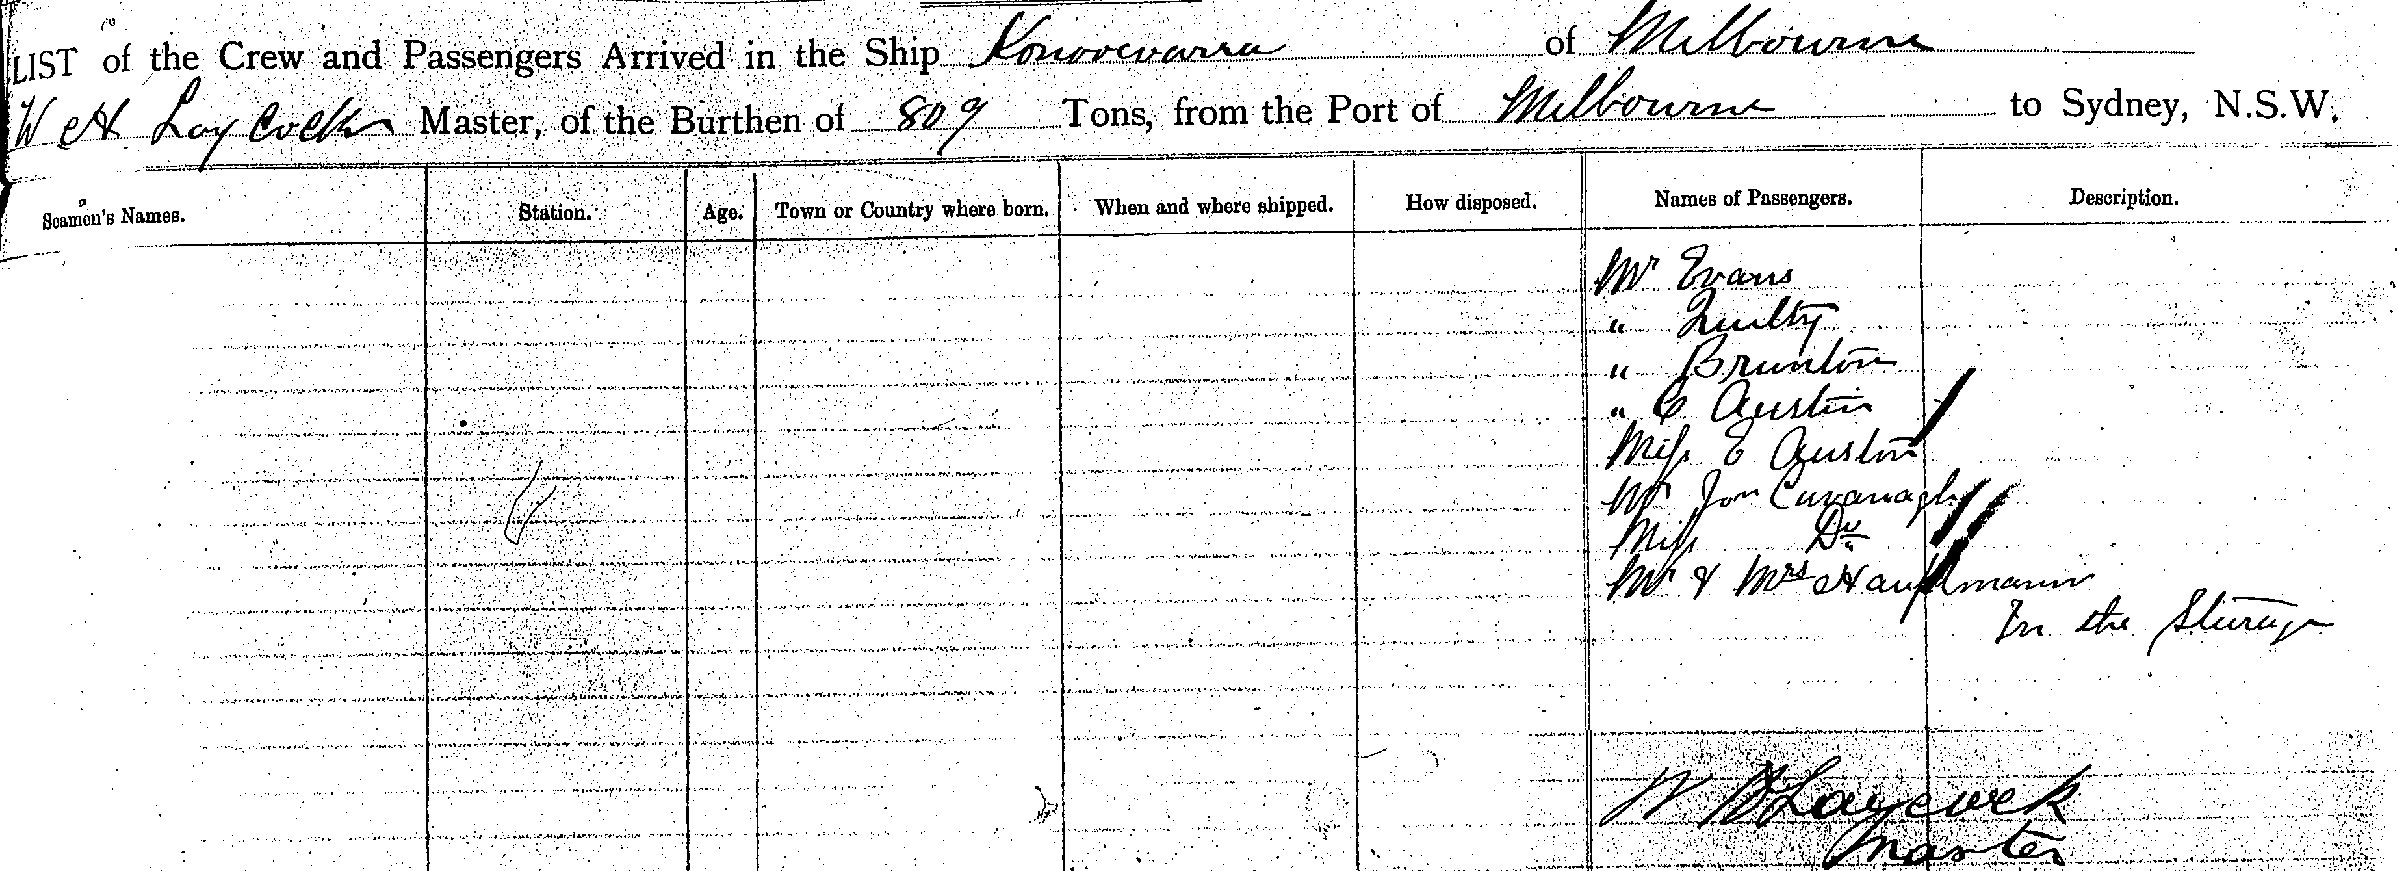 LIST of the Crew and Passengers Arrived in the Ship Konoowarra of Melbourne
W H Laycock Master, of the Burthen of 809 Tons, from the Port of Melbourne to Sydney, N.S.W.
Seamen's Names. Station. Age. Town or Country where born. When and where shipped. How disposed. Names of Passengers. Description.
Mr Evans
" Quilty
" Brunton
" C Austin
Miss E Austin
Mr Jon Cavanagh
Miss Do
Mr & Mrs Hauptmann
In the Steerage
W H Laycock
Master